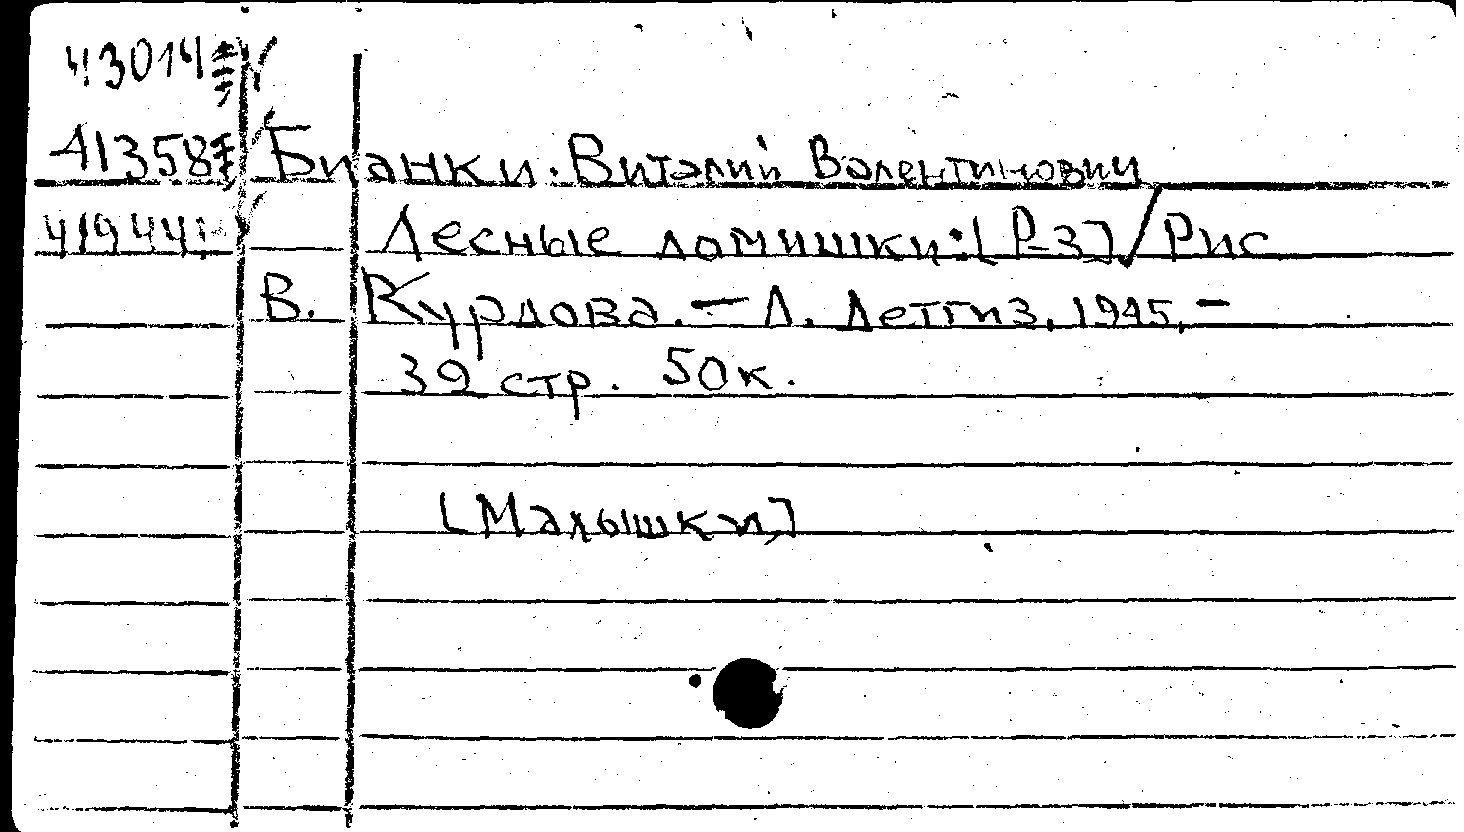 43014
41358 Бианки. Виталий Валентинович
41944 Лесные домишки: [Р-з] / Рис
В. Курдова. — Л. Детгиз, 1945, —
32 стр. 50 к.
[Малышки]